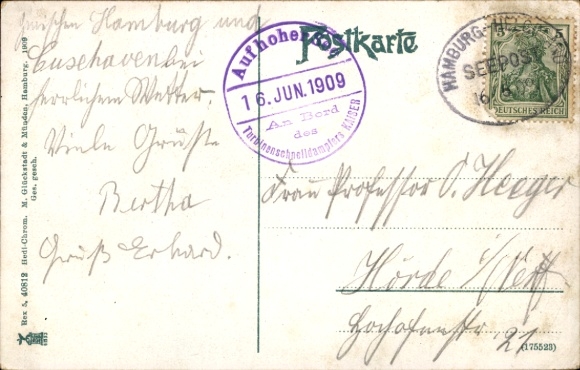 zwischen Hamburg und
Cuxhaven bei
herrlichem Wetter.
Viele Grüße
Bertha
Gruß Erhard.
Rex 5, 40812 Hedi-Chrom. M. Glückstadt & Münden, Hamburg. 1909
Ges. gesch.
Postkarte
Auf hoher See
16. JUN. 1909
An Bord
des
Turbinenschnelldampfers KAISER
HAMBURG-
SEEPOST
16
DEUTSCHES REICH
5
Frau Professor O. Heeger
Hörde i/Westf
Hochofenstr. 21
(175523)